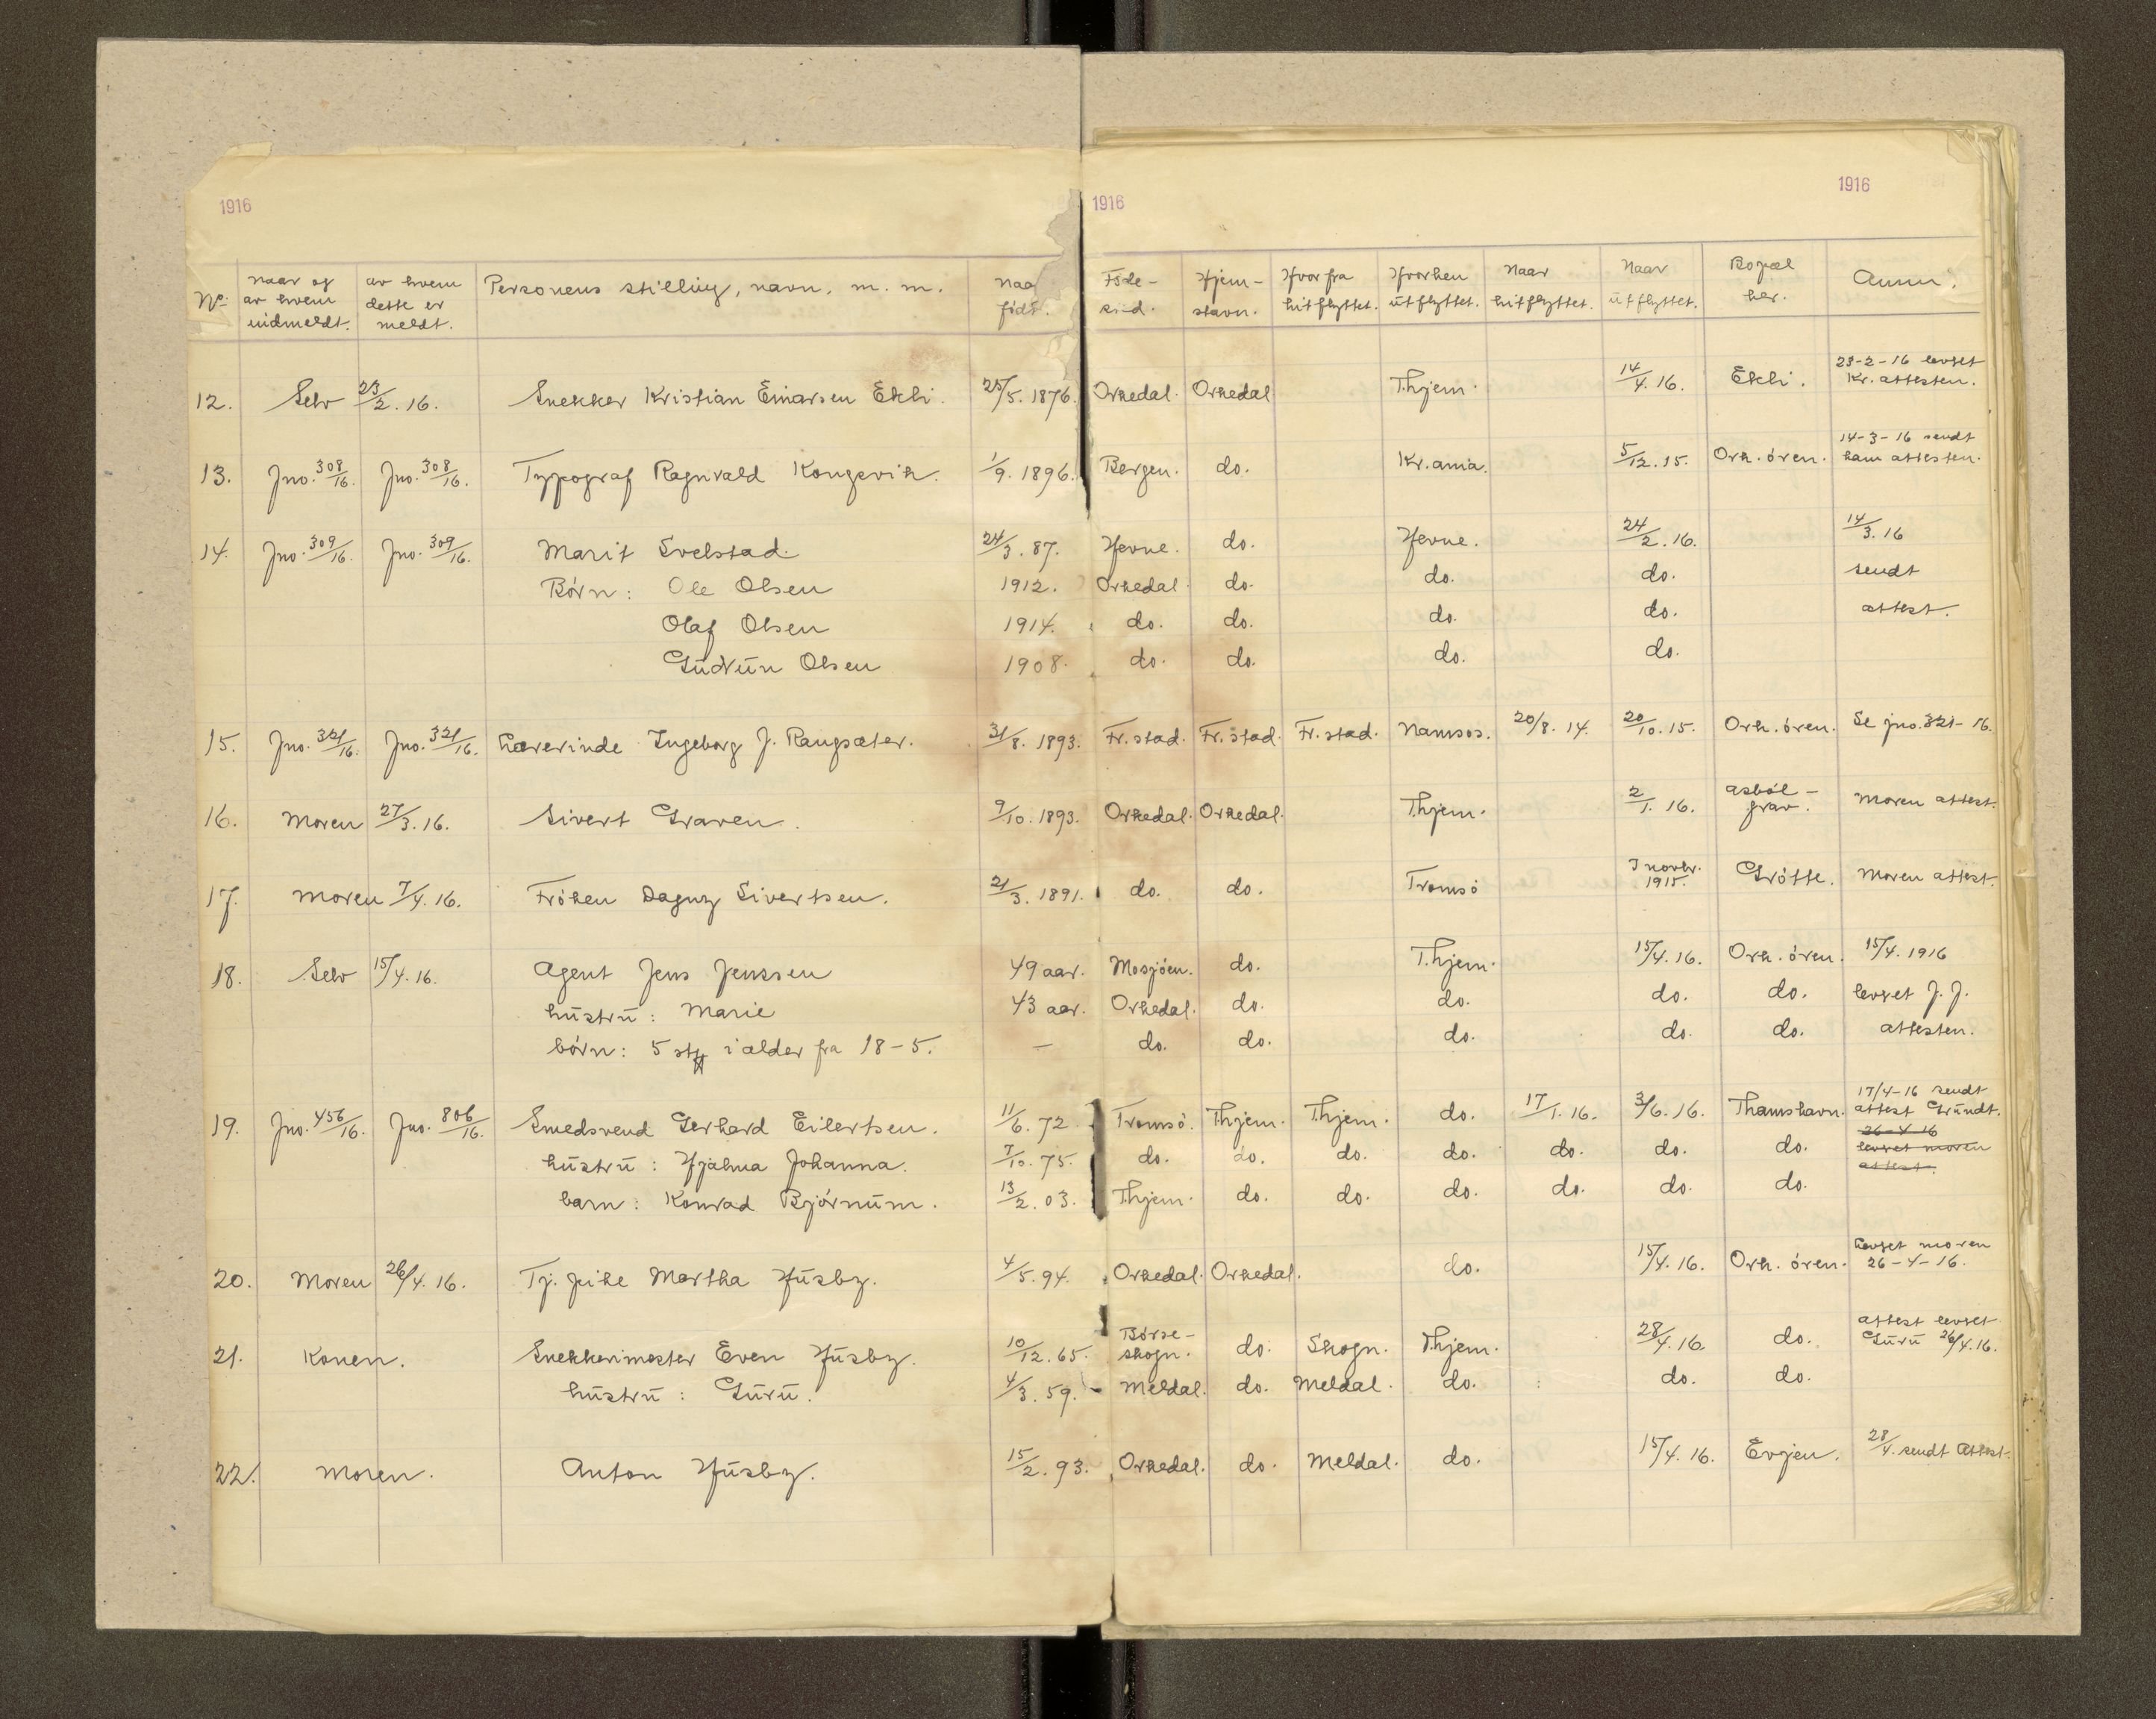 1916 1916 1916
No. naar og av hvem indmeldt. av hvem dette er meldt. Personens stilling, navn, m. m. Naar født. Føde-sted. Hjem-stavn. Hvor fra hitflyttet. Hvorhen utflyttet. Naar hitflyttet. Naar utflyttet. Bopæl her. Anm.
12. Selv 23/2.16. Snekker Kristian Einarsen Ekli. 25/5.1876. Orkedal. Orkedal T.hjem. 14/4.16. Ekli. 23-2-16 levret Kr. attesten.
13. Jno. 308/16. Jno. 308/16. Typograf Ragnvald Kongsvik. 1/9.1896. Bergen. do. Kr.ania. 5/12.15. Ork.ören. 14-3-16 sendt ham attesten.
14. Jno. 309/16. Jno. 309/16. Marit Svelstad. 24/3.87. Hevne. do. Hevne. 24/2.16. 14/3.16
Börn: Ole Olsen 1912. Orkedal. do. do. do. sendt
Olaf Olsen 1914. do. do. do. do. attest.
Gudrun Olsen 1908. do. do. do. do.
15. Jno. 321/16. Jno. 321/16. Lærerinde Ingeborg J. Rangsæter. 31/8.1893. Fr.stad. Fr.stad. Fr.stad. Namsos. 20/8.14. 20/10.15. Ork.ören. Se jno. 321-16.
16. Moren 27/3.16. Sivert Graven. 9/10.1893. Orkedal. Orkedal. T.hjem. 2/1.16. Asböl-grav. Moren attest.
17. Moren 7/4.16. Fröken Dagny Sivertsen. 21/3.1891. do. do. Tromsö I novbr. 1915. Grötte. Moren attest.
18. Selv 15/4.16. Agent Jens Jenssen 49 aar. Mosjöen. do. T.hjem. 15/4.16. Ork.ören. 15/4.1916
hustru: Marie 43 aar. Orkedal. do. do. do. do. levret J.J.
börn: 5 stk i alder fra 18-5. — do. do. do. do. do. attesten.
19. Jno. 456/16. Jno. 806/16. Smedsvend Gerhard Eilertsen. 11/6.72 Tromsö. T.hjem. T.hjem. do. 17/1.16. 3/6.16. Thamshavn. 17/4-16 sendt attest Grundt.
hustru: Hjalma Johanna. 7/10.75. do. do. do. do. do. do. do. 26-4-16 levret moren attest.
barn: Konrad Björnum. 13/2.03. T.hjem. do. do. do. do. do. do.
20. Moren 26/4.16. Tj.pike Martha Husby. 4/5.94. Orkedal. Orkedal. do. 15/4.16. Ork.ören. Levret moren 26-4-16.
21. Konen. Snekkermester Even Husby. 10/12.65. Börse-skogn. do. Skogn. T.hjem. 28/4.16. do. attest levret Guru 26/4.16.
hustru: Guru. 4/3.59. Meldal. do. Meldal. do. do. do.
22. Moren. Anton Husby. 15/2.93. Orkedal. do. Meldal. do. 15/4.16. Evjen. 28/4. sendt Attest.